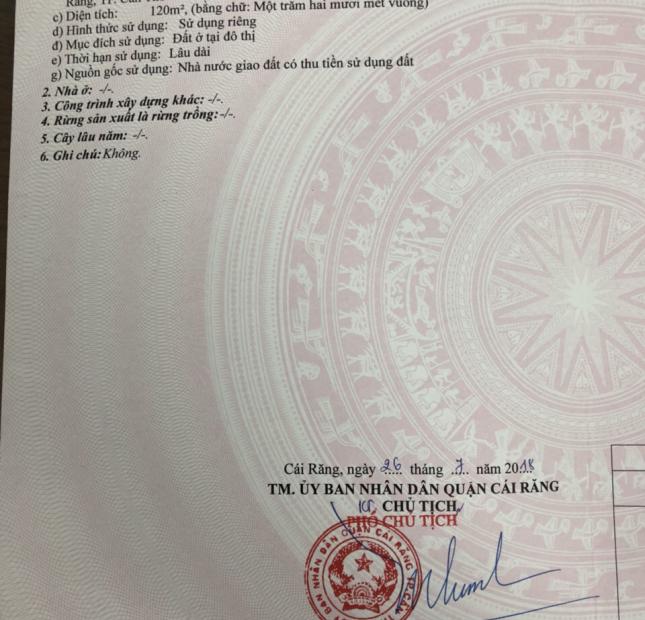 Răng, TP. Cần
c) Diện tích: 120m², (bằng chữ: Một trăm hai mươi mét vuông)
d) Hình thức sử dụng: Sử dụng riêng
đ) Mục đích sử dụng: Đất ở tại đô thị
e) Thời hạn sử dụng: Lâu dài
g) Nguồn gốc sử dụng: Nhà nước giao đất có thu tiền sử dụng đất
2. Nhà ở: -/-.
3. Công trình xây dựng khác: -/-.
4. Rừng sản xuất là rừng trồng: -/-.
5. Cây lâu năm: -/-.
6. Ghi chú: Không.
Cái Răng, ngày 26 tháng 7 năm 2018
TM. ỦY BAN NHÂN DÂN QUẬN CÁI RĂNG
KT. CHỦ TỊCH
PHÓ CHỦ TỊCH
ỦY BAN NHÂN DÂN QUẬN CÁI RĂNG TP.CẦN